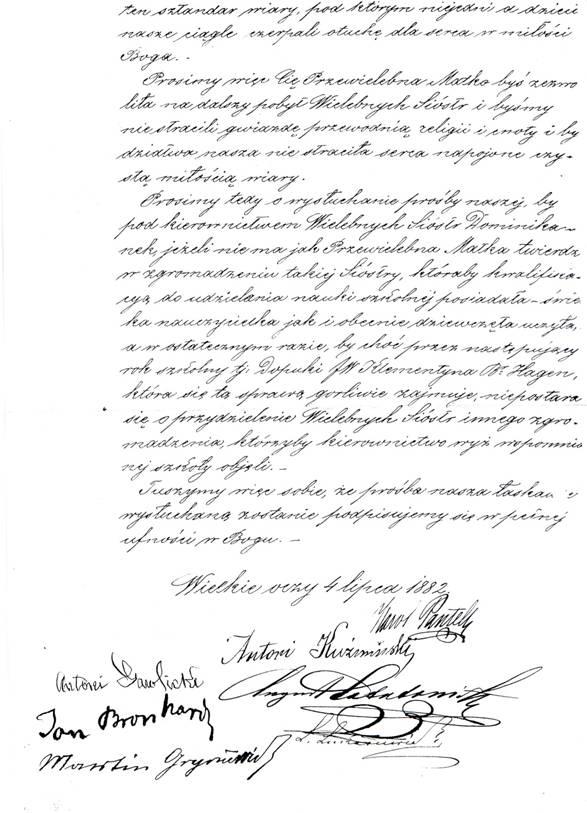 ten sztandar wiary, pod którym niejedni a dzieci
nasze ciągle czerpali otuchę dla serca w miłości
Boga. -
Prosimy więc Cię Przewielebna Matko byś zezwo
liła na dalszy pobyt Wielebnych Sióstr i byśmy
nie stracili gwiazdę przewodnią religii i cnoty i by
dziatwa nasza nie straciła serca napojone czy-
stą miłością wiary.
Prosimy tedy o wysłuchanie prośby naszej, by
pod kierownictwem Wielebnych Sióstr Dominika-
nek, jeżeli nie ma jak Przewielebna Matka twierdz
w zgromadzeniu takiej Siostry, któraby kwalifika-
cyą do udzielania nauki szkolnej posiadała - świe
ka nauczycielka jak i obecnie dziewczęta uczyła,
a w ostatecznym razie, by choć przez następujący
rok szkolny tj. Dopuki JW Klementyna Br. Hagen,
która się tą sprawą gorliwie zajmuje, niepostara
się o przydzielenie Wielebnych Sióstr innego zgro-
madzenia, którzyby kierownictwo wyż wspomnia
nej szkoły objęli. -
Tuszymy więc sobie, że prośba nasza łaskaw e
wysłuchaną zostanie podpisujemy się w pełnej
ufności w Bogu. -
Wielkie oczy 4 lipca 1882
Antoni Kuźmiński
Antoni Gawlicki
Jan Bronhard
Martin Gryniewicz